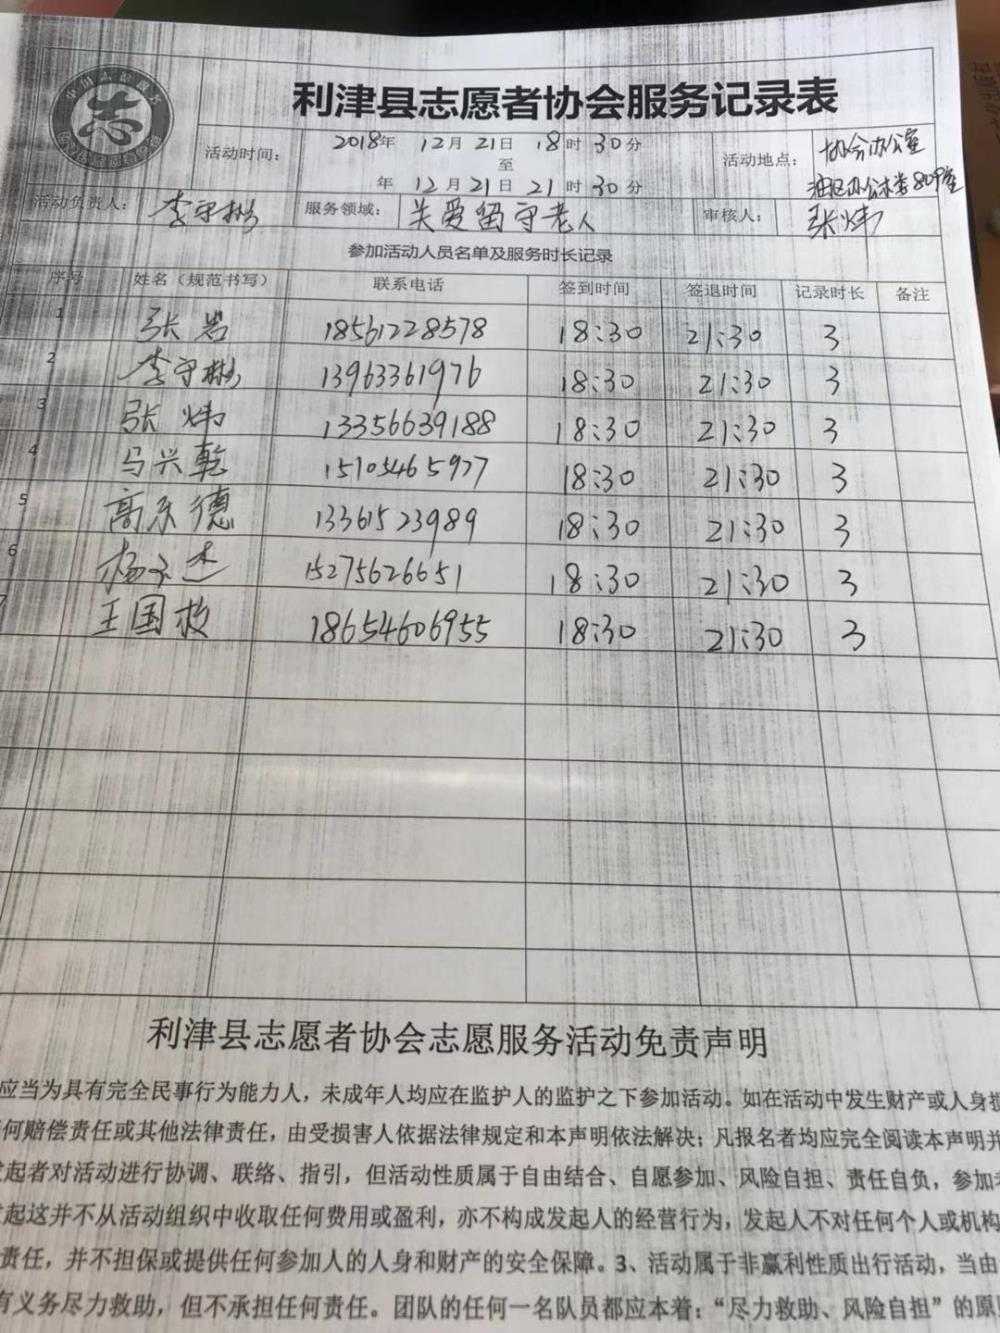 利津县志愿者协会服务记录表
活动时间： 2018年 12月 21日 18时 30分
至
年 12月 21日 21时 30分
活动地点： 协会办公室
809室
活动负责人： 李守彬 服务领域： 关爱留守老人 审核人： 张炜
参加活动人员名单及服务时长记录
序号 姓名（规范书写） 联系电话 签到时间 签退时间 记录时长 备注
1 张岩 18561228578 18:30 21:30 3
2 李守彬 13963361976 18:30 21:30 3
3 张炜 13356639188 18:30 21:30 3
4 马兴乾 15105465977 18:30 21:30 3
5 高乐德 13361523989 18:30 21:30 3
6 杨子杰 15275626651 18:30 21:30 3
7 王国 18654606955 18:30 21:30 3
利津县志愿者协会志愿服务活动免责声明
应当为具有完全民事行为能力人，未成年人均应在监护人的监护之下参加活动。如在活动中发生财产或人身损
何赔偿责任或其他法律责任，由受损害人依据法律规定和本声明依法解决；凡报名者均应完全阅读本声明并
发起者对活动进行协调、联络、指引，但活动性质属于自由结合、自愿参加、风险自担、责任自负，参加者
发起这并不从活动组织中收取任何费用或盈利，亦不构成发起人的经营行为，发起人不对任何个人或机构
责任，并不担保或提供任何参加人的人身和财产的安全保障。3、活动属于非赢利性质出行活动，当由
有义务尽力救助，但不承担任何责任。团队的任何一名队员都应本着：“尽力救助、风险自担”的原则